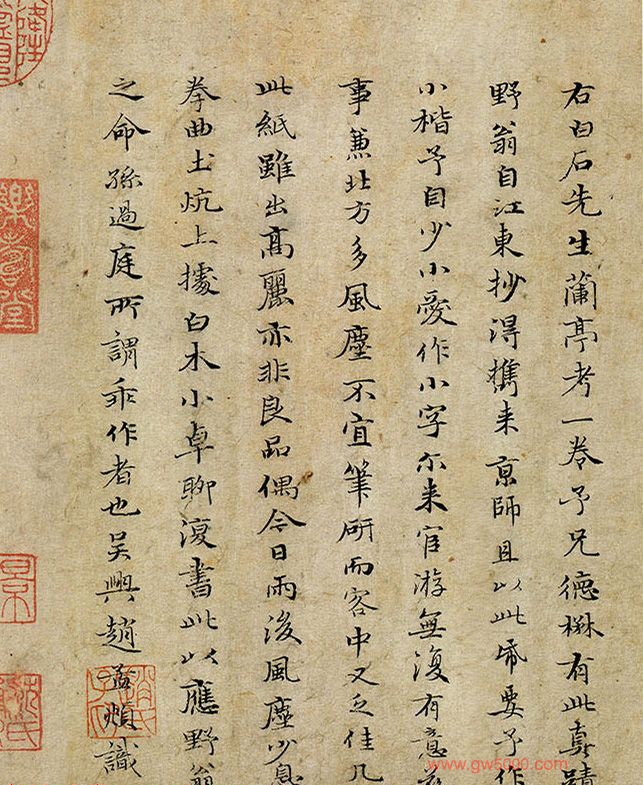 右白石先生蘭亭考一卷予兄德楙有此真蹟
野翁自江東抄得攜来京師且以此帋要予作
小楷予自少小愛作小字尓来宦游無復有意茲
事兼北方多風塵不宜筆研而客中又乏佳几
此紙雖出高麗亦非良品偶今日雨後風塵少息
拳曲土炕上據白木小卓聊復書此以應野翁
之命孫過庭所謂乖作者也吳興趙孟頫識
趙氏子昂
www.gw5000.com